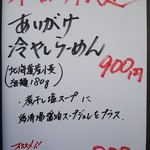 あいがけ
冷やしらーめん
900円
(北海道産小麦
細麺180g)
・煮干し塩スープに
鶏清湯醤油スープジュレをプラス。
オススメ!!